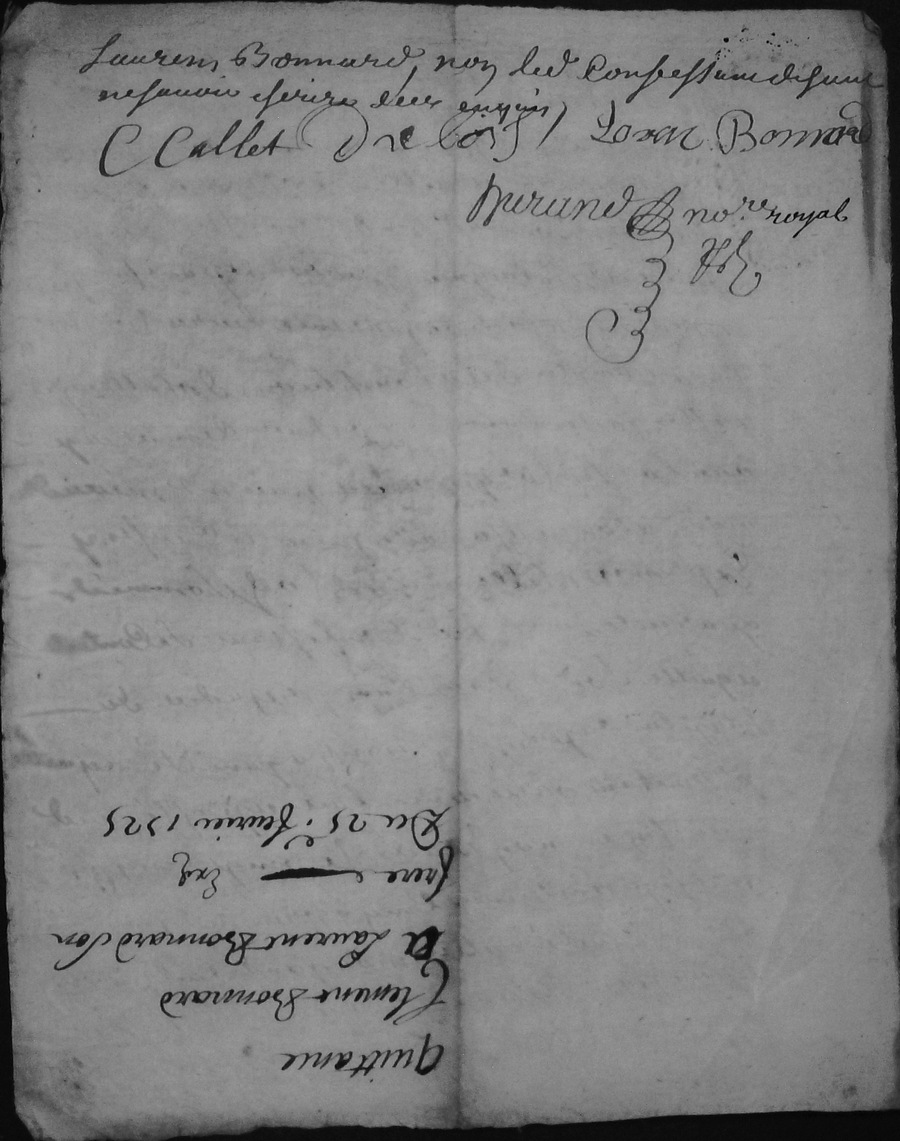 Laurens Bonnard, non led Confessant disant
ne scavoir escrire de ce enquis /
C Callet De Lois / Loran Bonnard
Durand no.re royal
Quittance
Clement Bonnard
A Laurent Bonnard son
frere Exp
Du 25.e fevrier 1725